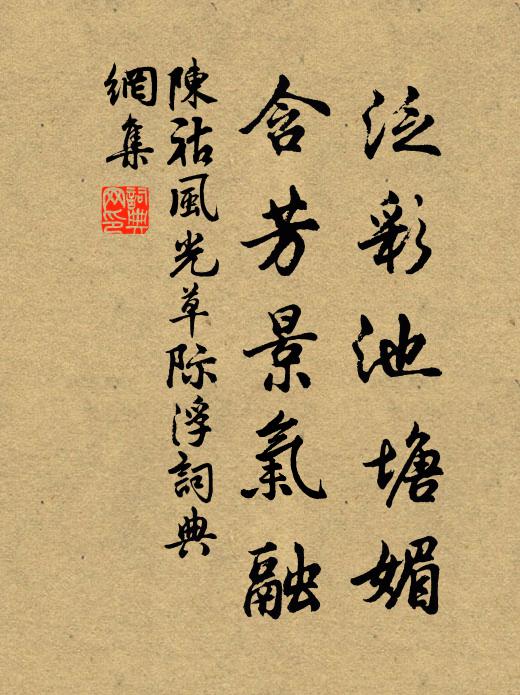 泛彩池塘媚
含芳景氣融
陳祜風光草际浮詞典
網集
詞典網印